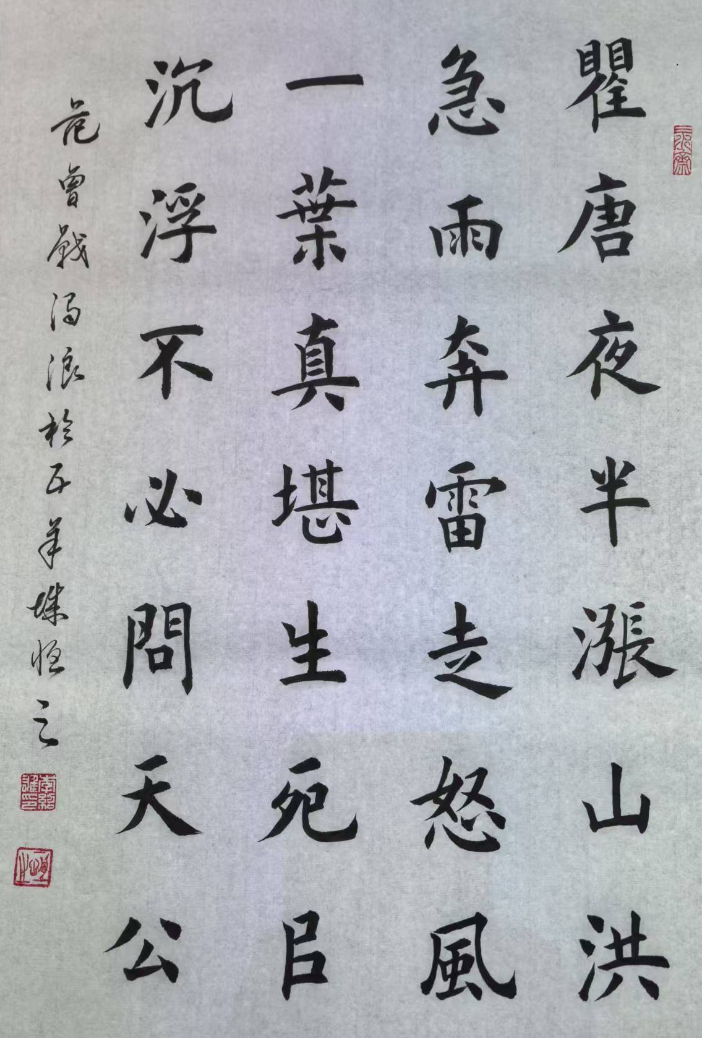 瞿唐夜半漲山洪
急雨奔雷走怒風
一葉真堪生死㠯
沉浮不必問天公
范曾戲浪於五羊城恒之